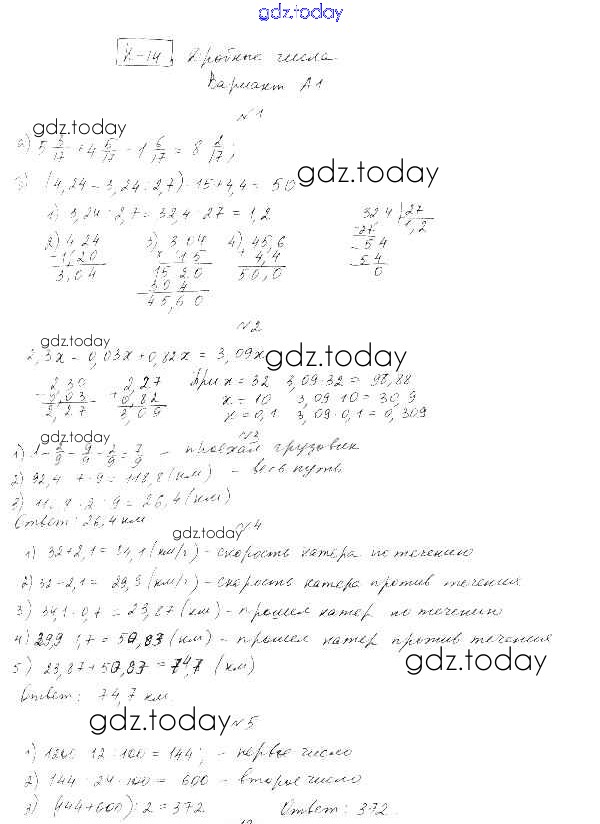 gdz.today
К-14. Дробные числа
Вариант А1
№1
gdz.today
а) 5 5/17 + 4 5/17 - 1 6/17 = 8 2/17;
gdz.today
(4,24 - 3,24 : 2,7) · 15 + 4,4 = 50
1) 3,24 : 2,7 = 32,4 : 27 = 1,2
324 | 27
27 1,2
- 54
54
0
2) 4 24
- 1,20
3,04
3) 3 04
× 15
15 20
304
45,60
4) 45,6
+ 4,4
50,0
№2
gdz.today
2,3x - 0,03x + 0,82x = 3,09x
gdz.today
2,30
- 0,03
2,27
2,27
+ 0,82
3,09
При x = 32 3,09·32 = 98,88
x = 10 3,09·10 = 30,9
x = 0,1 3,09·0,1 = 0,309
gdz.today
№3
1) - проехал грузовик
2) 92,4 : 7 · 9 = 118,8 (км) - весь путь
3) · 2 : 9 = 26,4 (км)
Ответ: 26,4 км
gdz.today
№4
1) 32+2,1 = 34,1 (км/г) - скорость катера по течению
2) 32-2,1 = 29,9 (км/г) - скорость катера против течения
3) 34,1 · 0,7 = 23,87 (км) - прошел катер по течению
4) 29,9 · 1,7 = 50,83 (км) - прошел катер против течения
gdz.today
5) 23,87 + 50,83 = 74,7 (км)
Ответ: 74,7 км.
gdz.today
№5
1) 1200 · 12 : 100 = 144; - первое число
2) 144 : 24 · 100 = 600 - второе число
3) (144+600) : 2 = 372 Ответ: 372.